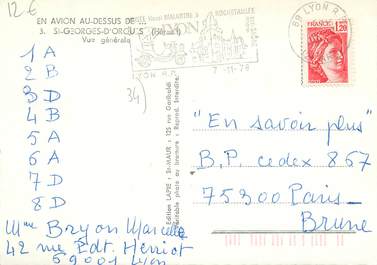 12 €
EN AVION AU-DESSUS DE
3. St-GEORGES-D'ORQUES (Hérault)
Vue générale
1 A
2 B
3 D
4 B
5 A
6 A
7 D
8 D
34)
Mme Bryon Marcelle
42 rue Pdt. Herriot
69001 Lyon
Edition LAPIE - St-MAUR - 125 rue Garibaldi
Véritable photo au bromure - Reprod. Interdite
MALARTRE A
ROCHETAILLEE
LYON
SUR SAONE
LYON R.P.
7-11-78
69 LYON R.P.
FRANCE
1,20
"En savoir plus"
B.P. cedex 867
75300 Paris-
Brune